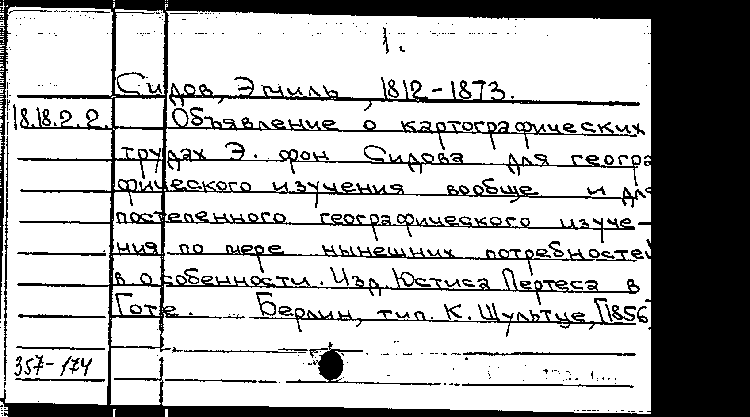 1.
Сидов, Эмиль, 1812-1873.
18.18.2.2. Объявление о картографических
трудах Э. фон Сидова для геогра
фического изучения вообще и для
постепенного географического изуче-
ния по мере нынешних потребностей
в особенности. Изд. Юстиса Пертеса в
Готе. Берлин, тип. К. Шультце, [1856]
357-174